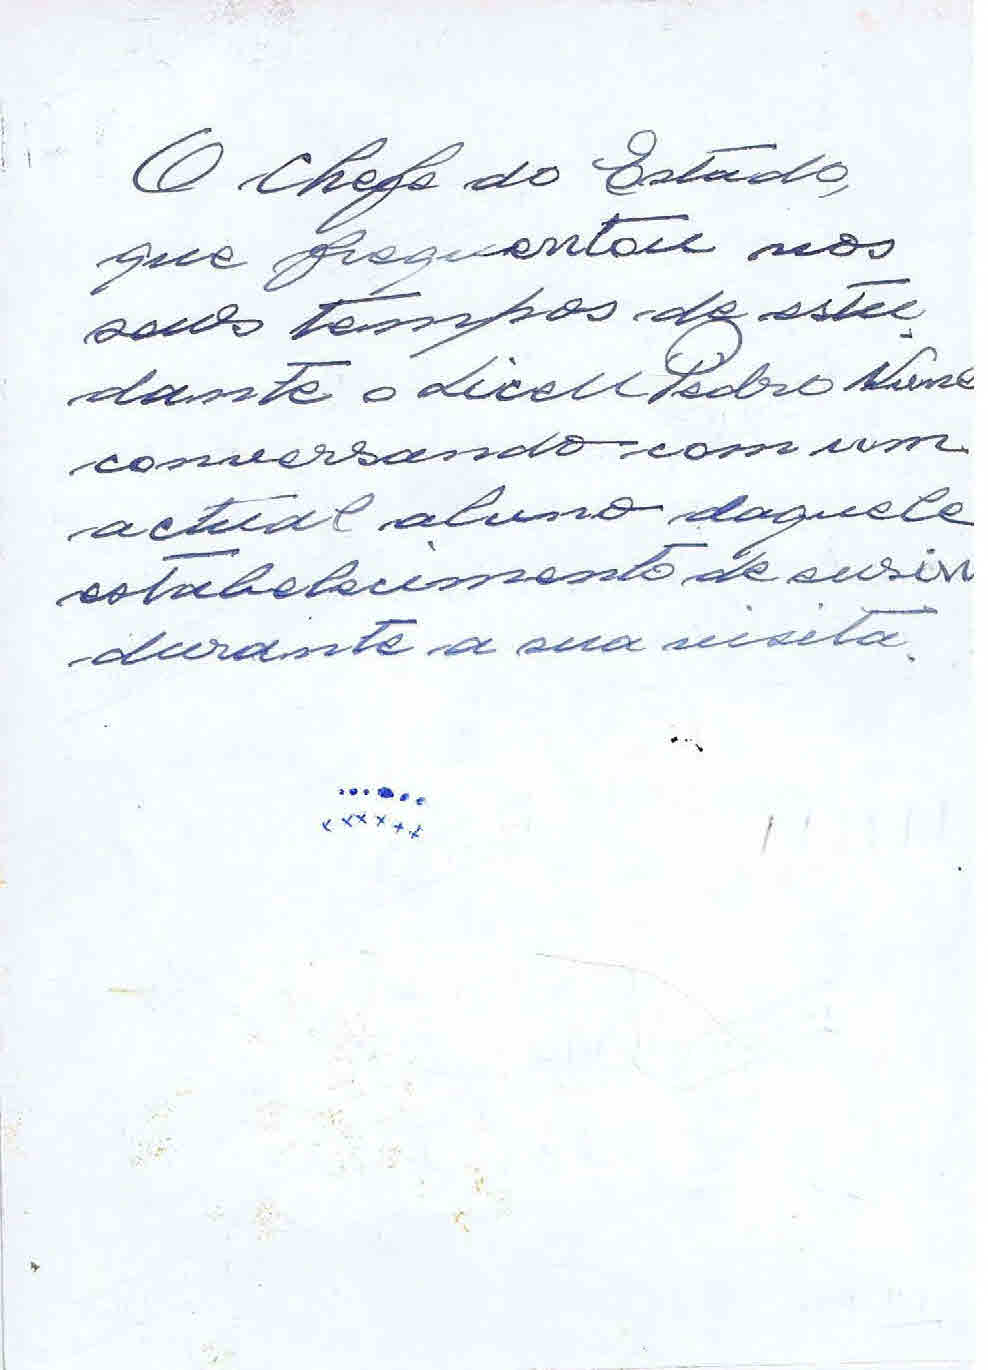 O Chefe do Estado,
que frequentou nos
seus tempos de estu-
dante o Liceu Pedro Nune
conversando com um
actual aluno daquele
estabelecimento de ensin
durante a sua visita.